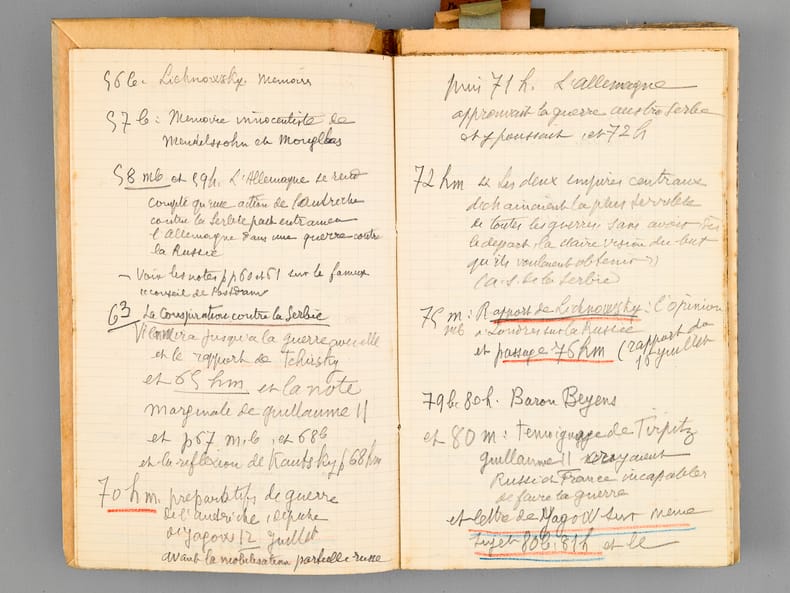 56 b. Lichnowsky. Memoirs
57 b : Memoire innocentiste de
Mendelssohn et Montgelas
58 mb et 59h. L'Allemagne se rend
compte qu'une action de l'autriche
contre la Serbie peut entrainer
l'Allemagne dans une guerre contre
la Russie
Voir les notes pp 60 et 61 sur le fameux
conseil de Postdam
63 La Conspiration contre la Serbie
jusqu'a la guerre
et le rapport de Tchirsky
et 65 hm et la note
marginale de Guillaume II
et p67 m.b, et 68b
et la reflexion de Kautsky p 68hm
70 hm. preparatifs de guerre
de l'autriche, depeche
de Yagow 12 Juillet
avant la mobilisation partielle russe
puis 71 h. L'allemagne
approuvait la guerre austro serbe
et y poussent, et 72h
72 hm << Les deux empires centraux
dechainaient la plus
de toutes les guerres sans avoir dès
le depart la claire vision du but
qu'ils voulaient obtenir >>
(a.s. de la Serbie)
75 m : Rapport de Lichnowsky : l'opinion
mb à Londres sur la Russie
et passage 76 hm (rapport du
16 juillet
79 b. 80h. Baron Beyens
et 80 m : Temoignage de Tirpitz
Guillaume II croyaient
Russie et France incapables
de faire la guerre
et lettre de Yagow sur meme
sujet 80b. 81h et le